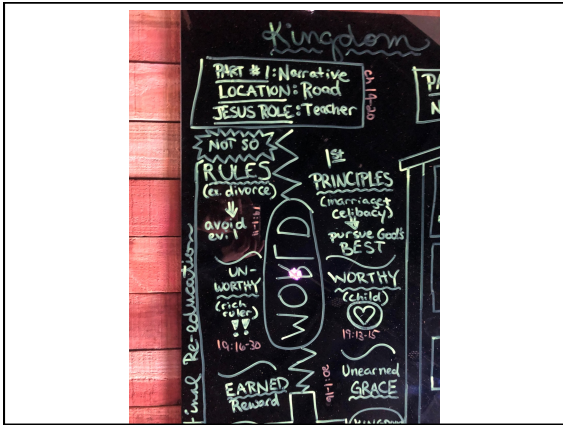 Kingdom
PART #1: Narrative
LOCATION: Road
JESUS ROLE: Teacher
ch 19-20
NOT SO
RULES
(ex. divorce)
avoid
evil
19:1-11
UN-
WORTHY
(rich
ruler)
!!
19:16-30
EARNED
Reward
WORLD
1st
PRINCIPLES
(marriage+
celibacy)
pursue God's
BEST
WORTHY
(child)
19:13-15
Unearned
GRACE
20:1-16
Re-education